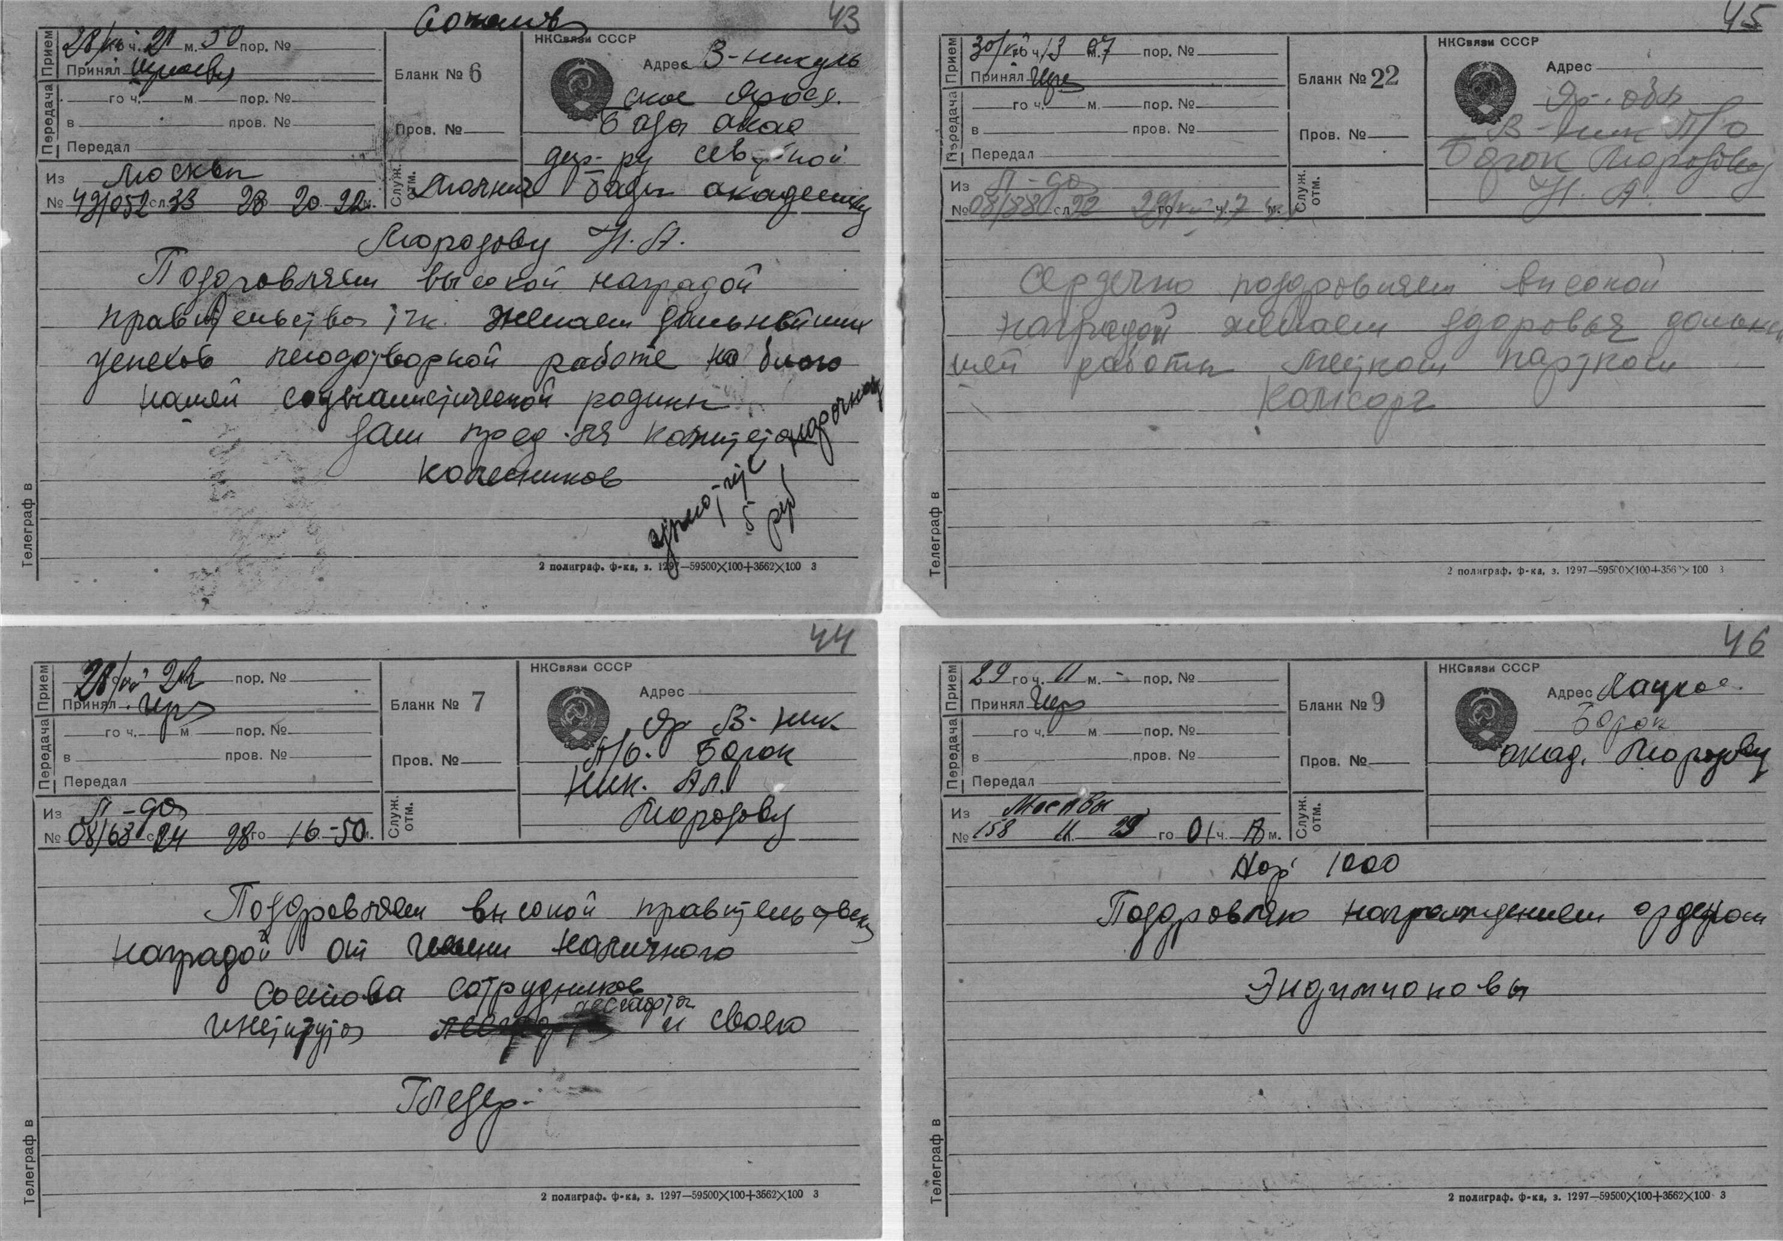 43
Прием
28/ ч. 21 м. 50 пор. №
Принял
Передача
го ч. м пор. №
в пров. №
Передал
Из Москвы
№ 49/052 сл. 33 28 20 22 м.
Бланк № 6
Пров. №
Служ. отм.
НКСвязи СССР
Адрес В-николь
ское Яросл.
База акад
дир-ру
базы академику
Морозову Н.А.
Поздровляем высокой наградой
желаем дальнейших
успехов плодотворной работе на благо
нашей социалистической родины
Зам пред. комитета
Колесников
Телеграф в
2 полиграф. ф-ка, з. 1297—59500×100+3562×100 3
45
Прием
30/ ч. 13 м. 07 пор. №
Принял
Передача
го ч. м пор. №
в пров. №
Передал
Из Л-да
№ 08/380 сл. 22 29 го ч. 17 м.
Бланк № 22
Пров. №
Служ. отм.
НКСвязи СССР
Адрес
Яр. обл
В-ник П/о
Борок Морозову
Н. А.
Сердечно поздровляем высокой
наградой желаем здоровья дальней
шей работы Местком партком
Комсорг
Телеграф в
2 полиграф. ф-ка, з. 1297—59500×100+3562×100 3
44
Прием
28/ 21 пор. №
Принял
Передача
го ч. м пор. №
в пров. №
Передал
Из Л-да
№ 08/63 с 24 28 го 16-50 м.
Бланк № 7
Пров. №
Служ. отм.
НКСвязи СССР
Адрес
Яр В-ник
П/о. Борок
Ник. Ал.
Морозову
Поздровляем высокой правительствен
наградой от имени наличного
состова сотрудников
института лесгафта и своего
Телеграф в
2 полиграф. ф-ка, з. 1297—59500×100+3562×100 3
46
Прием
29 го ч. 11 м. - пор. №
Принял
Передача
го ч. м пор. №
в пров. №
Передал
Из Москвы
№ 158 11 29 го 01 ч. м.
Бланк № 9
Пров. №
Служ. отм.
НКСвязи СССР
Адрес Лацкое
Борок
акад. Морозову
1000
Поздровляю награждением орденом
Эндимионовы
Телеграф в
2 полиграф. ф-ка, з. 1297—59500×100+3562×100 3